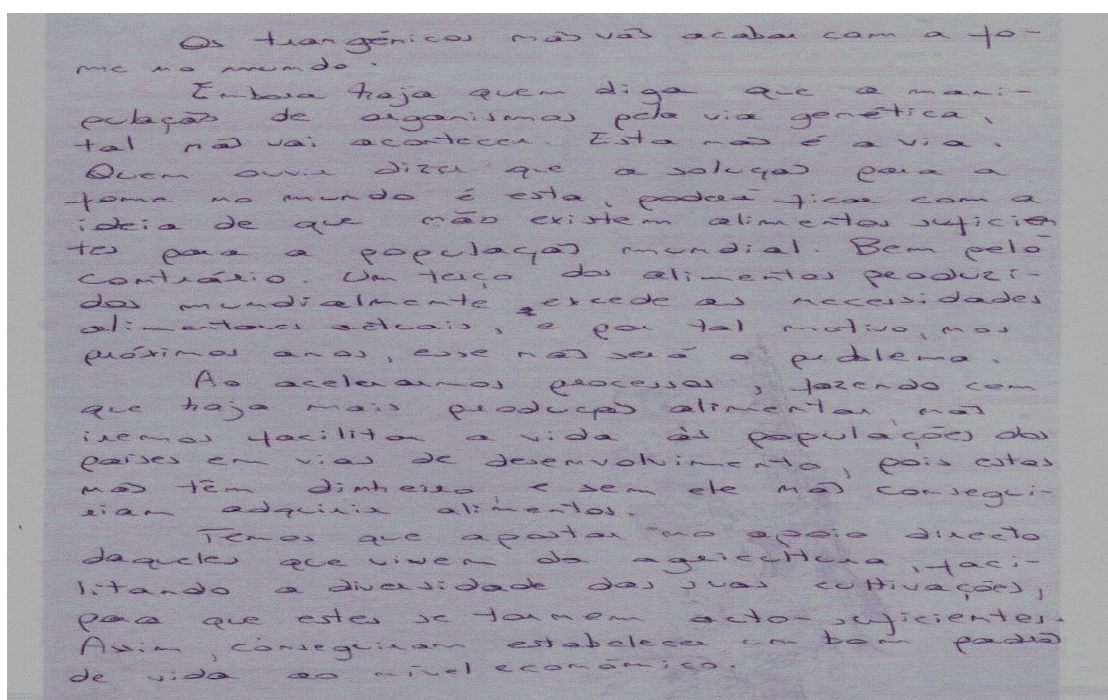 Os transgénicos não vão acabar com a fo-
me no mundo.
Embora haja quem diga que a mani-
pulação de organismos pela via genética,
tal não vai acontecer. Esta não é a via.
Quem ouvir dizer que a solução para a
fome no mundo é esta, poderá ficar com a
ideia de que não existem alimentos suficien
tes para a população mundial. Bem pelo
contrário. Um terço dos alimentos produzi-
dos mundialmente, excede as necessidades
alimentares actuais, e por tal motivo, nos
próximos anos, esse não será o problema.
Ao acelerarmos processos, fazendo com
que haja mais produção alimentar, não
iremos facilitar a vida às populações dos
países em vias de desenvolvimento, pois estas
não têm dinheiro, e sem ele não consegui-
riam adquirir alimentos.
Temos que apostar no apoio directo
daqueles que vivem da agricultura, faci-
litando a diversidade das suas cultivações,
para que estes se tornem auto-suficientes.
Assim, conseguiram estabelecer um bom padrão
de vida ao nível económico.